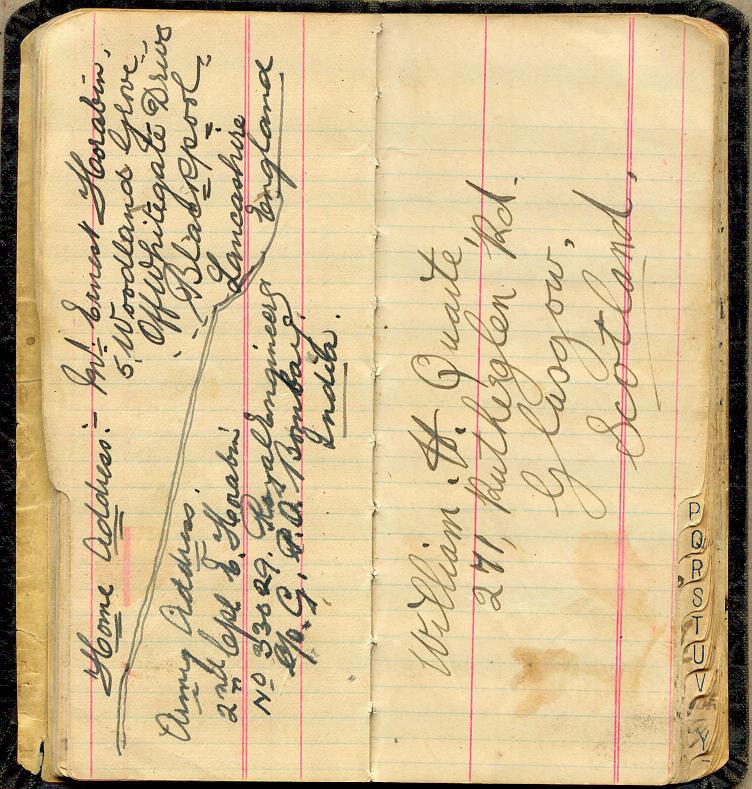 Home Address:- Mr. Ernest Horabin,
5, Woodland Grove
Off Whitegate Drive
Blackpool
Lancashire
England
Army Address.
2nd Cpl E. Horabin
No 33029. Royal Engineers
c/o G. P. O. Bombay
India.
William H. Quarte
271, Rutherglen Rd.
Glasgow,
Scotland,
P
Q
R
S
T
U
V
Y